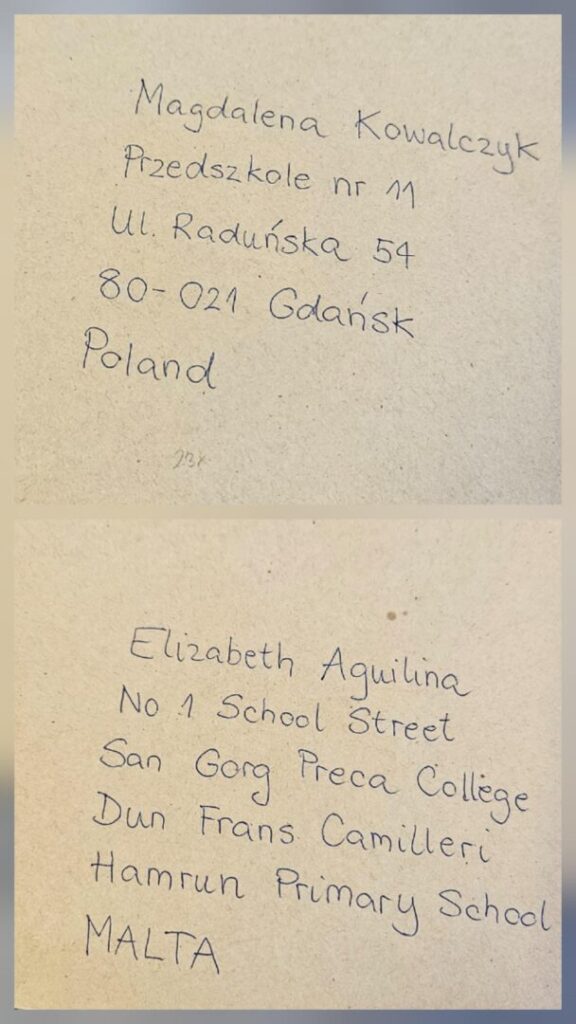 Magdalena Kowalczyk
Przedszkole nr 11
Ul. Raduńska 54
80-021 Gdańsk
Poland
Elizabeth Aguilina
No 1 School Street
San Gorg Preca College
Dun Frans Camilleri
Hamrun Primary School
MALTA